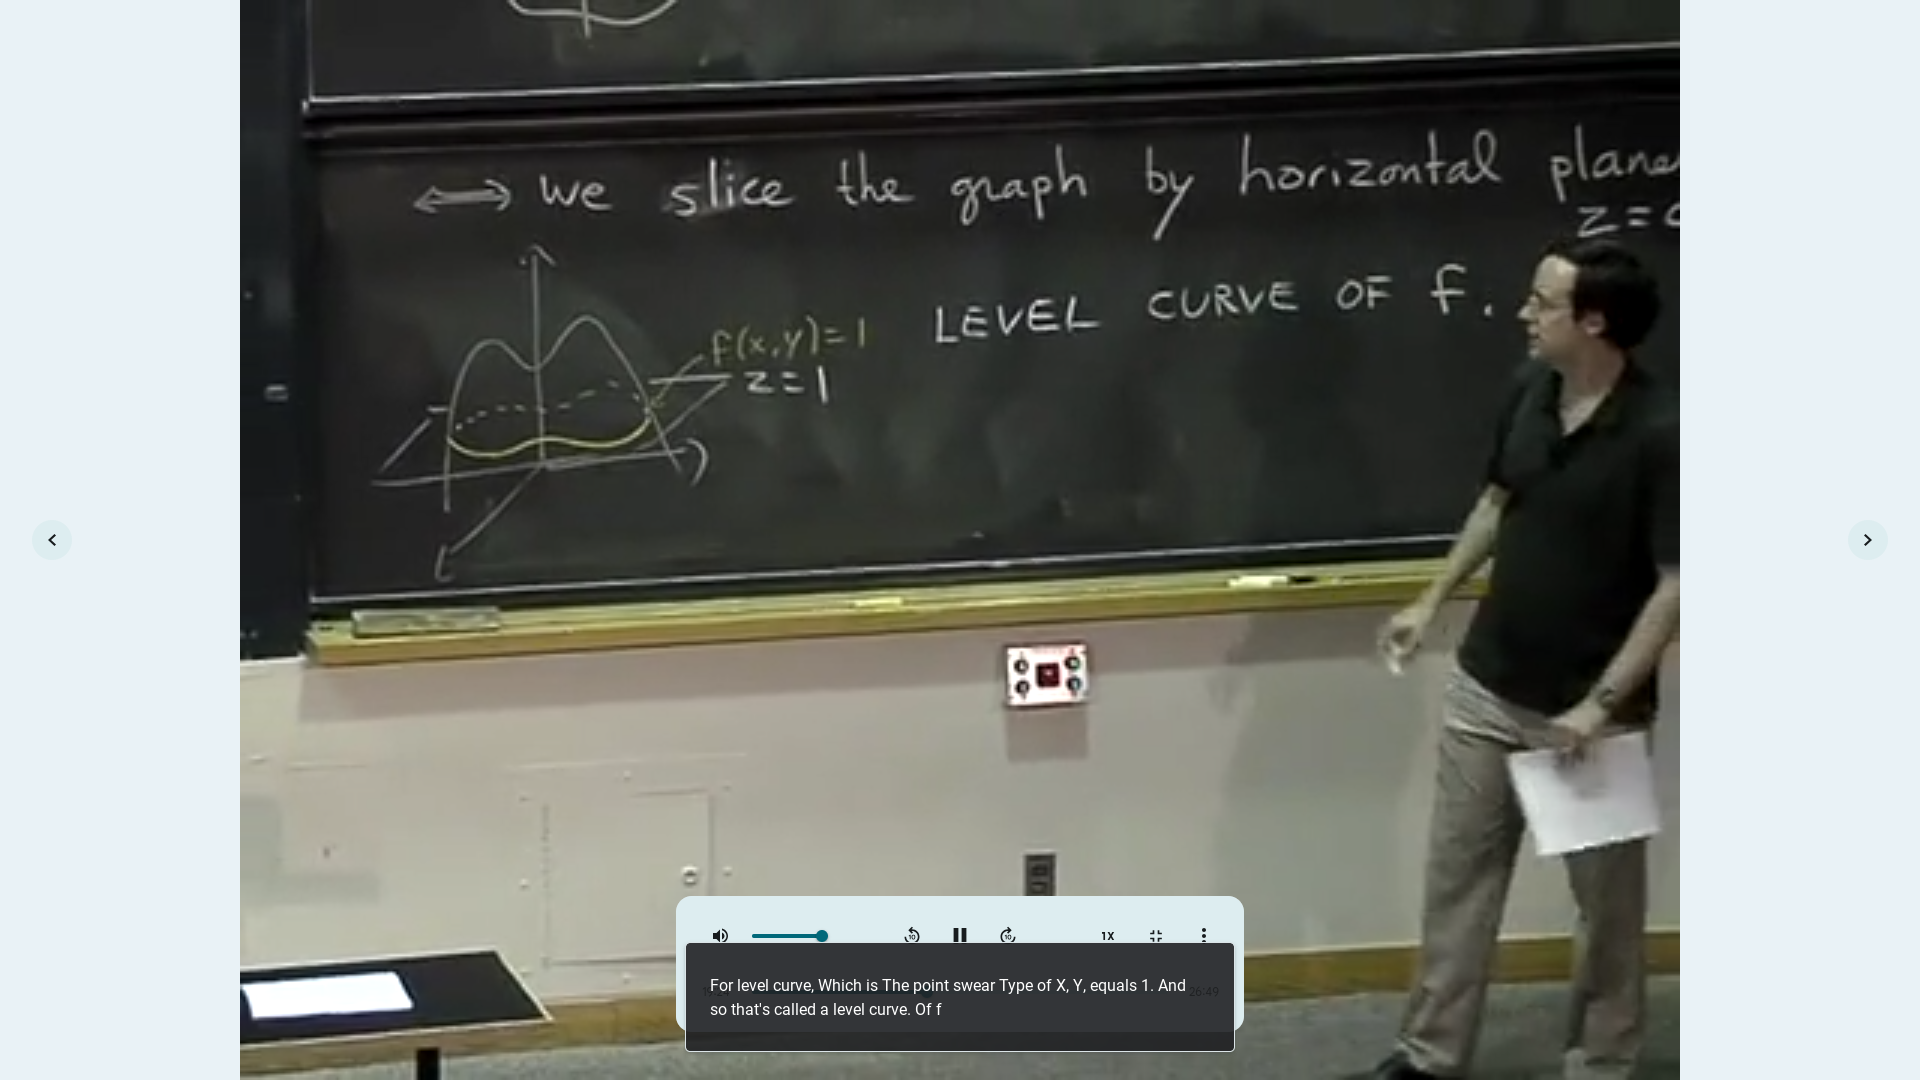 ⟺ we slice the graph by horizontal plane
z =
f(x,y)=1
z = 1
LEVEL CURVE OF f.
1X
26:49
For level curve, Which is The point swear Type of X, Y, equals 1. And
so that's called a level curve. Of f